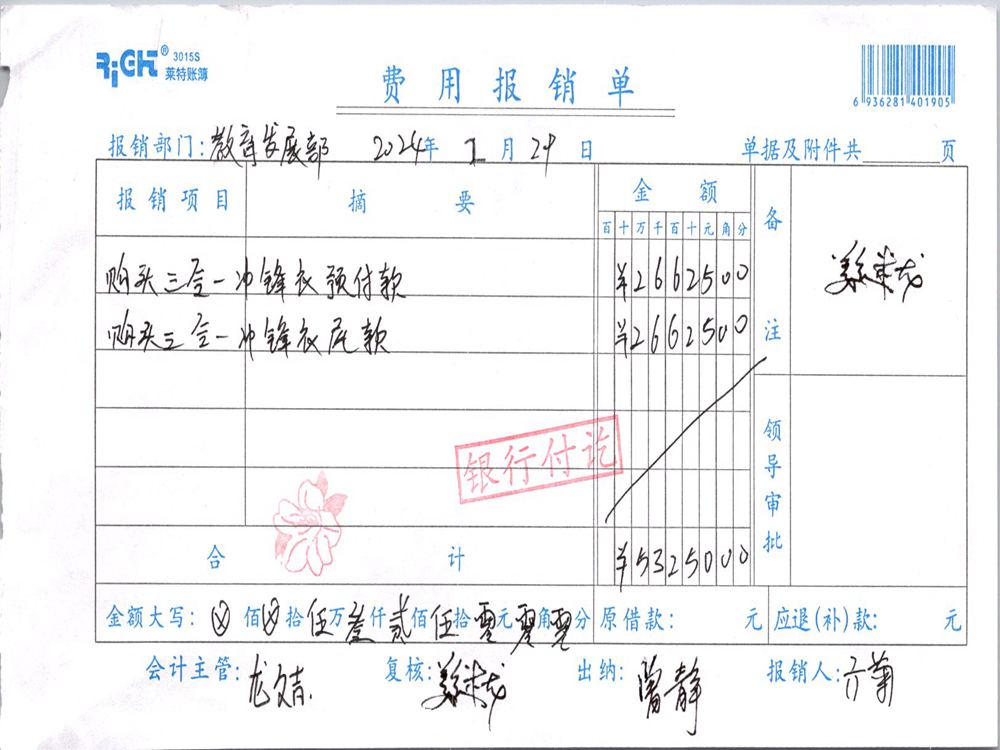 RiGHT® 3015S
莱特账簿
费用报销单
6 936281 401905
报销部门:教育发展部 2024年 1月 29日 单据及附件共 页
报销项目 摘要 金额 备注
百十万千百十元角分
购买三合一冲锋衣预付款 ¥2662500
购买三合一冲锋衣尾款 ¥2662500
银行付讫
领导审批
合计 ¥5325000
金额大写:ⓧ佰ⓧ拾伍万叁仟贰佰伍拾零元零角零分 原借款: 元 应退(补)款: 元
会计主管: 复核: 出纳:曾静 报销人: